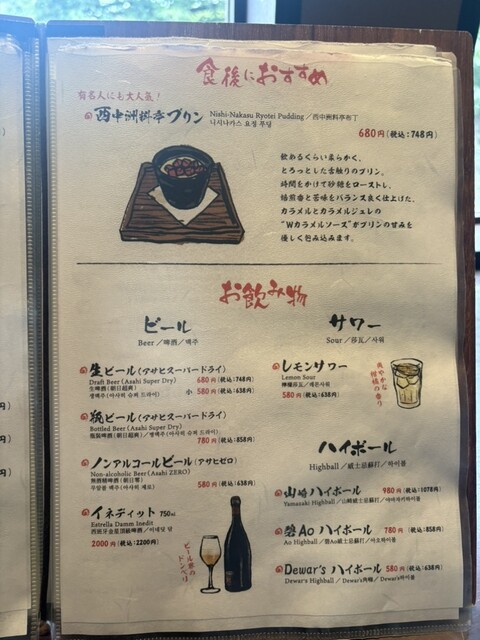 食後におすすめ
有名人にも大人気!
西中洲料亭プリン
Nishi-Nakasu Ryotei Pudding／西中洲料亭布丁
니시나카스 요정 푸딩
680円(税込:748円)
飲めるくらい柔らかく、
とろっとした舌触りのプリン。
時間をかけて砂糖をローストし、
焙煎香と苦味をバランス良く仕上げた、
カラメルとカラメルジュレの
"Wカラメルソース"がプリンの甘みを
優しく包み込みます。
お飲み物
ビール
Beer／啤酒／맥주
生ビール(アサヒスーパードライ)
Draft Beer (Asahi Super Dry)
680円(税込:748円)
生啤酒(朝日超爽)
小 580円(税込:638円)
생맥주(아사히 슈퍼 드라이)
瓶ビール(アサヒスーパードライ)
Bottled Beer (Asahi Super Dry)
瓶裝啤酒(朝日超爽)／병맥주(아사히 슈퍼 드라이)
780円(税込:858円)
ノンアルコールビール(アサヒゼロ)
Non-alcoholic Beer (Asahi ZERO)
無酒精啤酒(朝日零)
무알콜 맥주(아사히 제로)
580円(税込:638円)
イネディット 750ml
Estrella Damm Inedit
西班牙金星頂級啤酒／이네딧 담
2000円(税込:2200円)
ビール界の
ドンペリ
サワー
Sour／莎瓦／사워
レモンサワー
Lemon Sour
檸檬莎瓦／레몬사워
580円(税込:638円)
爽やかな
柑橘の香り
ハイボール
Highball／威士忌蘇打／하이볼
山崎ハイボール
980円(税込:1078円)
Yamasaki Highball／山崎威士忌蘇打／야마자키하이볼
碧Ao ハイボール
780円(税込:858円)
Ao Highball／碧Ao威士忌蘇打／아오하이볼
Dewar's ハイボール
580円(税込:638円)
Dewar's Highball／Dewar's
Dewar's하이볼